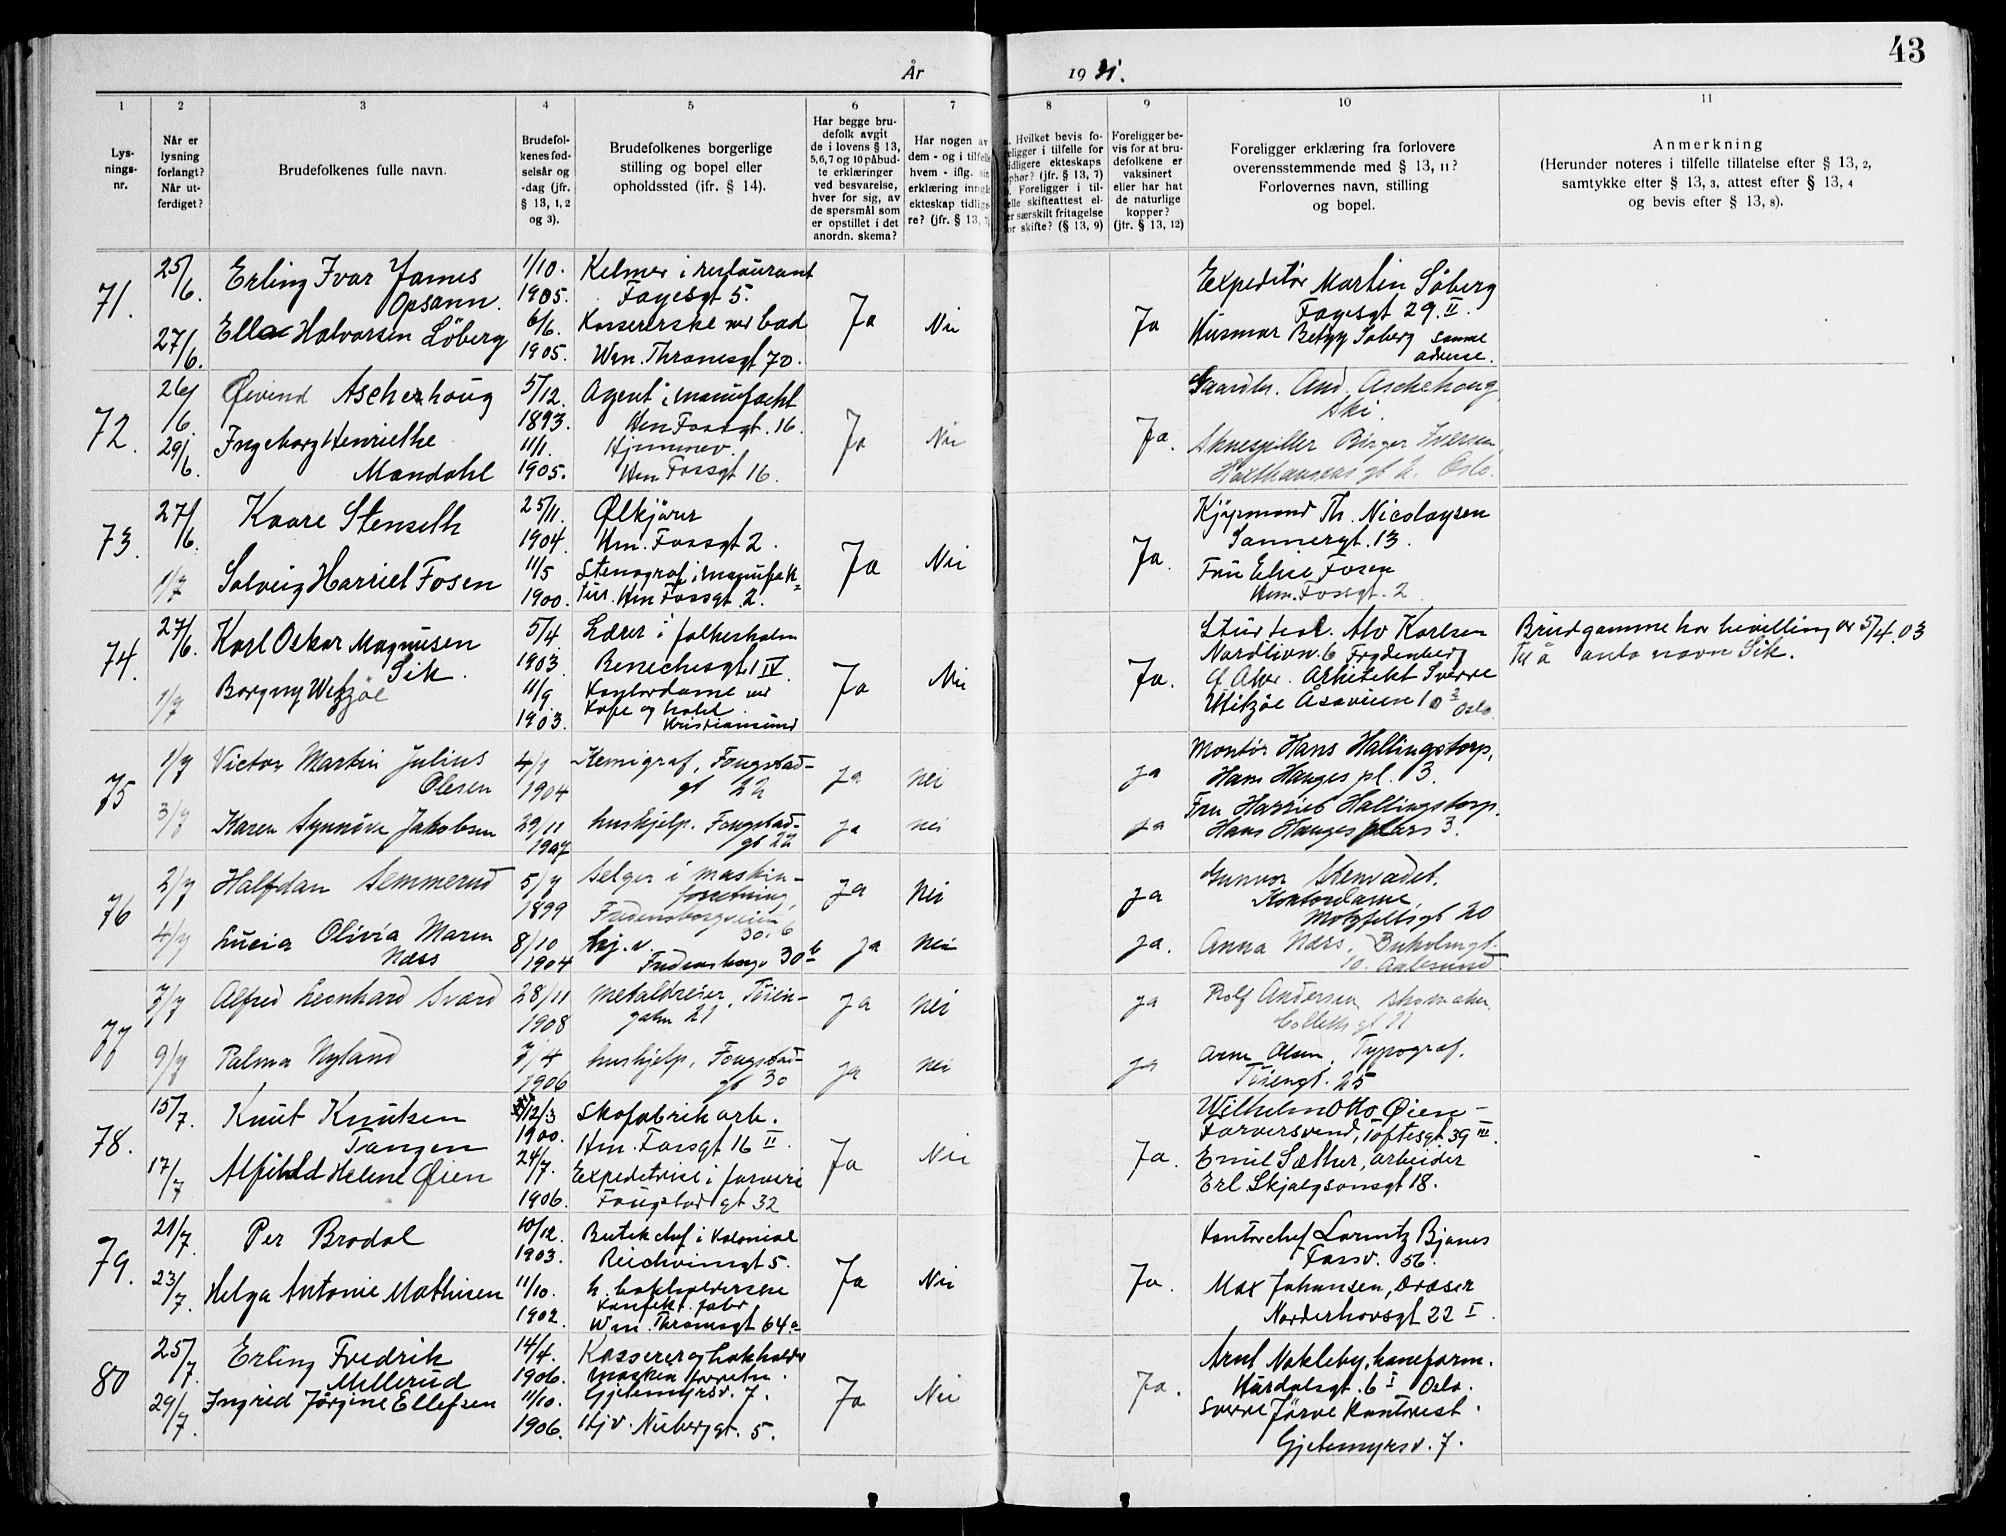 43
År
19 31.
1
2
3
4
5
6
7
8
9
10
11
Lys-
nings-
nr.
Når er
lysning
forlangt?
Når ut-
ferdiget?
Brudefolkenes fulle navn.
Brudefol-
kenes fød-
selsår og
-dag (jfr.
§ 13, 1, 2
og 3).
Brudefolkenes borgerlige
stilling og bopel eller
opholdssted (jfr. § 14).
Har begge bru-
defolk avgit
de i lovens § 13,
5,6,7 og 10 påbud-
te erklæringer
ved besvarelse,
hver for sig, av
de spørsmål som
er opstillet i det
anordn. skema?
Har nogen av
dem - og i tilfelle
hvem - iflg. sin
erklæring inngå
ekteskap tidlige-
re? (jfr. § 13, 7)
Hvilket bevis fo-
religger i tilfelle for
tidligere ekteskaps
ophør? (jfr. § 13, 7)
Foreligger i til-
felle skifteattest el-
er særskilt fritagelse
for skifte? (§ 13, 9)
Foreligger be-
vis for at bru-
defolkene er
vaksinert
eller har hat
de naturlige
kopper?
(jfr. § 13, 12)
Foreligger erklæring fra forlovere
overensstemmende med § 13, 11?
Forlovernes navn, stilling
og bopel.
Anmerkning
(Herunder noteres i tilfelle tillatelse efter § 13, 2,
samtykke efter § 13, 3, attest efter § 13, 4
og bevis efter § 13, 8).
71.
25/6.
27/6.
Erling Ivar James
Opsann.
Ella Halvorsen Söberg
1/10.
1905.
6/6.
1905.
Kelner i restaurant
Fagesgt 5.
Kassererske ved bad
Wm. Thranesgt 70.
Ja
Nei
Ja
Expeditør Martin Söberg
Fagesgt 29. II.
Husmor Betzy Söberg samme
adresse.
72.
26/6.
29/6.
Øivind Aschehoug
Ingeborg Henriethe
Mandahl
5/12.
1893.
11/1.
1905.
Agent i manufackt
Wm Fossgt. 16.
Hjemmev.
Wm Fossgt 16.
Ja
Nei
Ja.
Gaardbr. And. Aschehoug
Ski.
Skuespiller Birger Iversen
Oslo.
73.
27/6.
1/7
Kaare Stenseth
Solveig Harriet Fosen
25/11.
1904.
11/5
1900.
Ølkjører
Hm. Fossgt 2.
Stenograf i manufak=
tur. Hm Fossgt. 2.
Ja
Nei
Ja.
Kjøpmand Th. Nicolaysen
Sannergt. 13.
Fru Elise Fosen
Hm. Fossgt. 2
74.
27/6.
1/7
Karl Oskar Magnusen
Sik.
Borgny Witzöe
5/4.
1903.
11/9.
1903.
Lærer i folkeskolen
Benechesgt 1 IV.
Kontordame ved
Kafe og hotel
Kristiansund
Ja
Nei
Ja.
Stud real. Alv Karlsen
Nordlivn. 6 Frydenberg
Ø Aker. Arkitekt Sverre
Witzöe Åsaveien 10 Oslo
Brudgomme har bevilling av 5/4. 03
til å anta navn Sik.
75
1/7
3/7
Victor Martin Julius
Olesen
Karen Synnöve Jakobsen
4/1
1904
29/11
1907
Kemigraf, Fougstad-
gt 22
huskjelp. Fougstad-
gt 22
ja
nei
ja
nei
ja
ja
Montör Hans Hallingstorp,
Hans Hauges pl. 3.
Fru Harriet Hallingstorp.
Hans Hauges plass 3.
76
2/7
4/7
Halfdan Semmerud
Lucia Olivia Maren
Næss
5/7
1899
8/10
1904
Selger i maskin-
forretning,
Fredensborgveien
30. b
hj. v.
Fredensborgv 30 b
ja
nei
ja
nei
ja
ja.
Gunvor Stenvadet.
Kontordame,
Motzfeltsgt 20
Anna Næss,
10. Aalesund
77
7/7
9/7
Alfred Leonhard Sværd
Palma Nyland
28/11
1908
7/4
1906
metaldreier, Töien-
gaten 21
huskjelp, Fougstad-
gt 30
ja
nei
ja
nei
ja
ja
Rolf Andersen, skomaker
Colletts gt 11
Arne Olsen, Typograf.
Töiengt. 25
78.
15/7.
17/7
Knut Knutsen
Tangen
Alfhild Helene Øien
12/3
1900.
24/7.
1906.
Skofabrikarb.
Hm. Fossgt 16 II.
Expeditrise i farveri
Fougstad gt 32
Ja
Nei
Ja.
Wilhelm Otto Øien-
Farversvend, Toftesgt 39 III.
Emil Sæther, arbeider
Erl. Skjalgsonsgt 18.
79.
21/7.
23/7.
Per Brodal
Helga Antonie Mathisen
10/12.
1903.
11/10.
1902.
Butikchef i Kolonial
Reichweinsgt 5.
h. bokholderske
Konfekt. fabr
Wm. Thranesgt 64a
Ja
Nei
Ja.
Kontorchef Lorentz Bjanes
Fossv. 56.
Max Johansen, Dreier
Norderhovsgt 22 I.
80
25/7.
29/7.
Erling Fredrik
Mellerud
Ingrid Jörgine Ellefsen
14/4.
1906.
11/10.
1906.
Kasserer og bokholder
maskin forretn.
Gjetemyrsv. 7.
Hjv. Nubergt. 5.
Ja
Nei
Ja.
Arnt Nakleby,
Hurdalsgt. 6 I Oslo.
Sverre Kontorist.
Gjetemyrsv. 7.